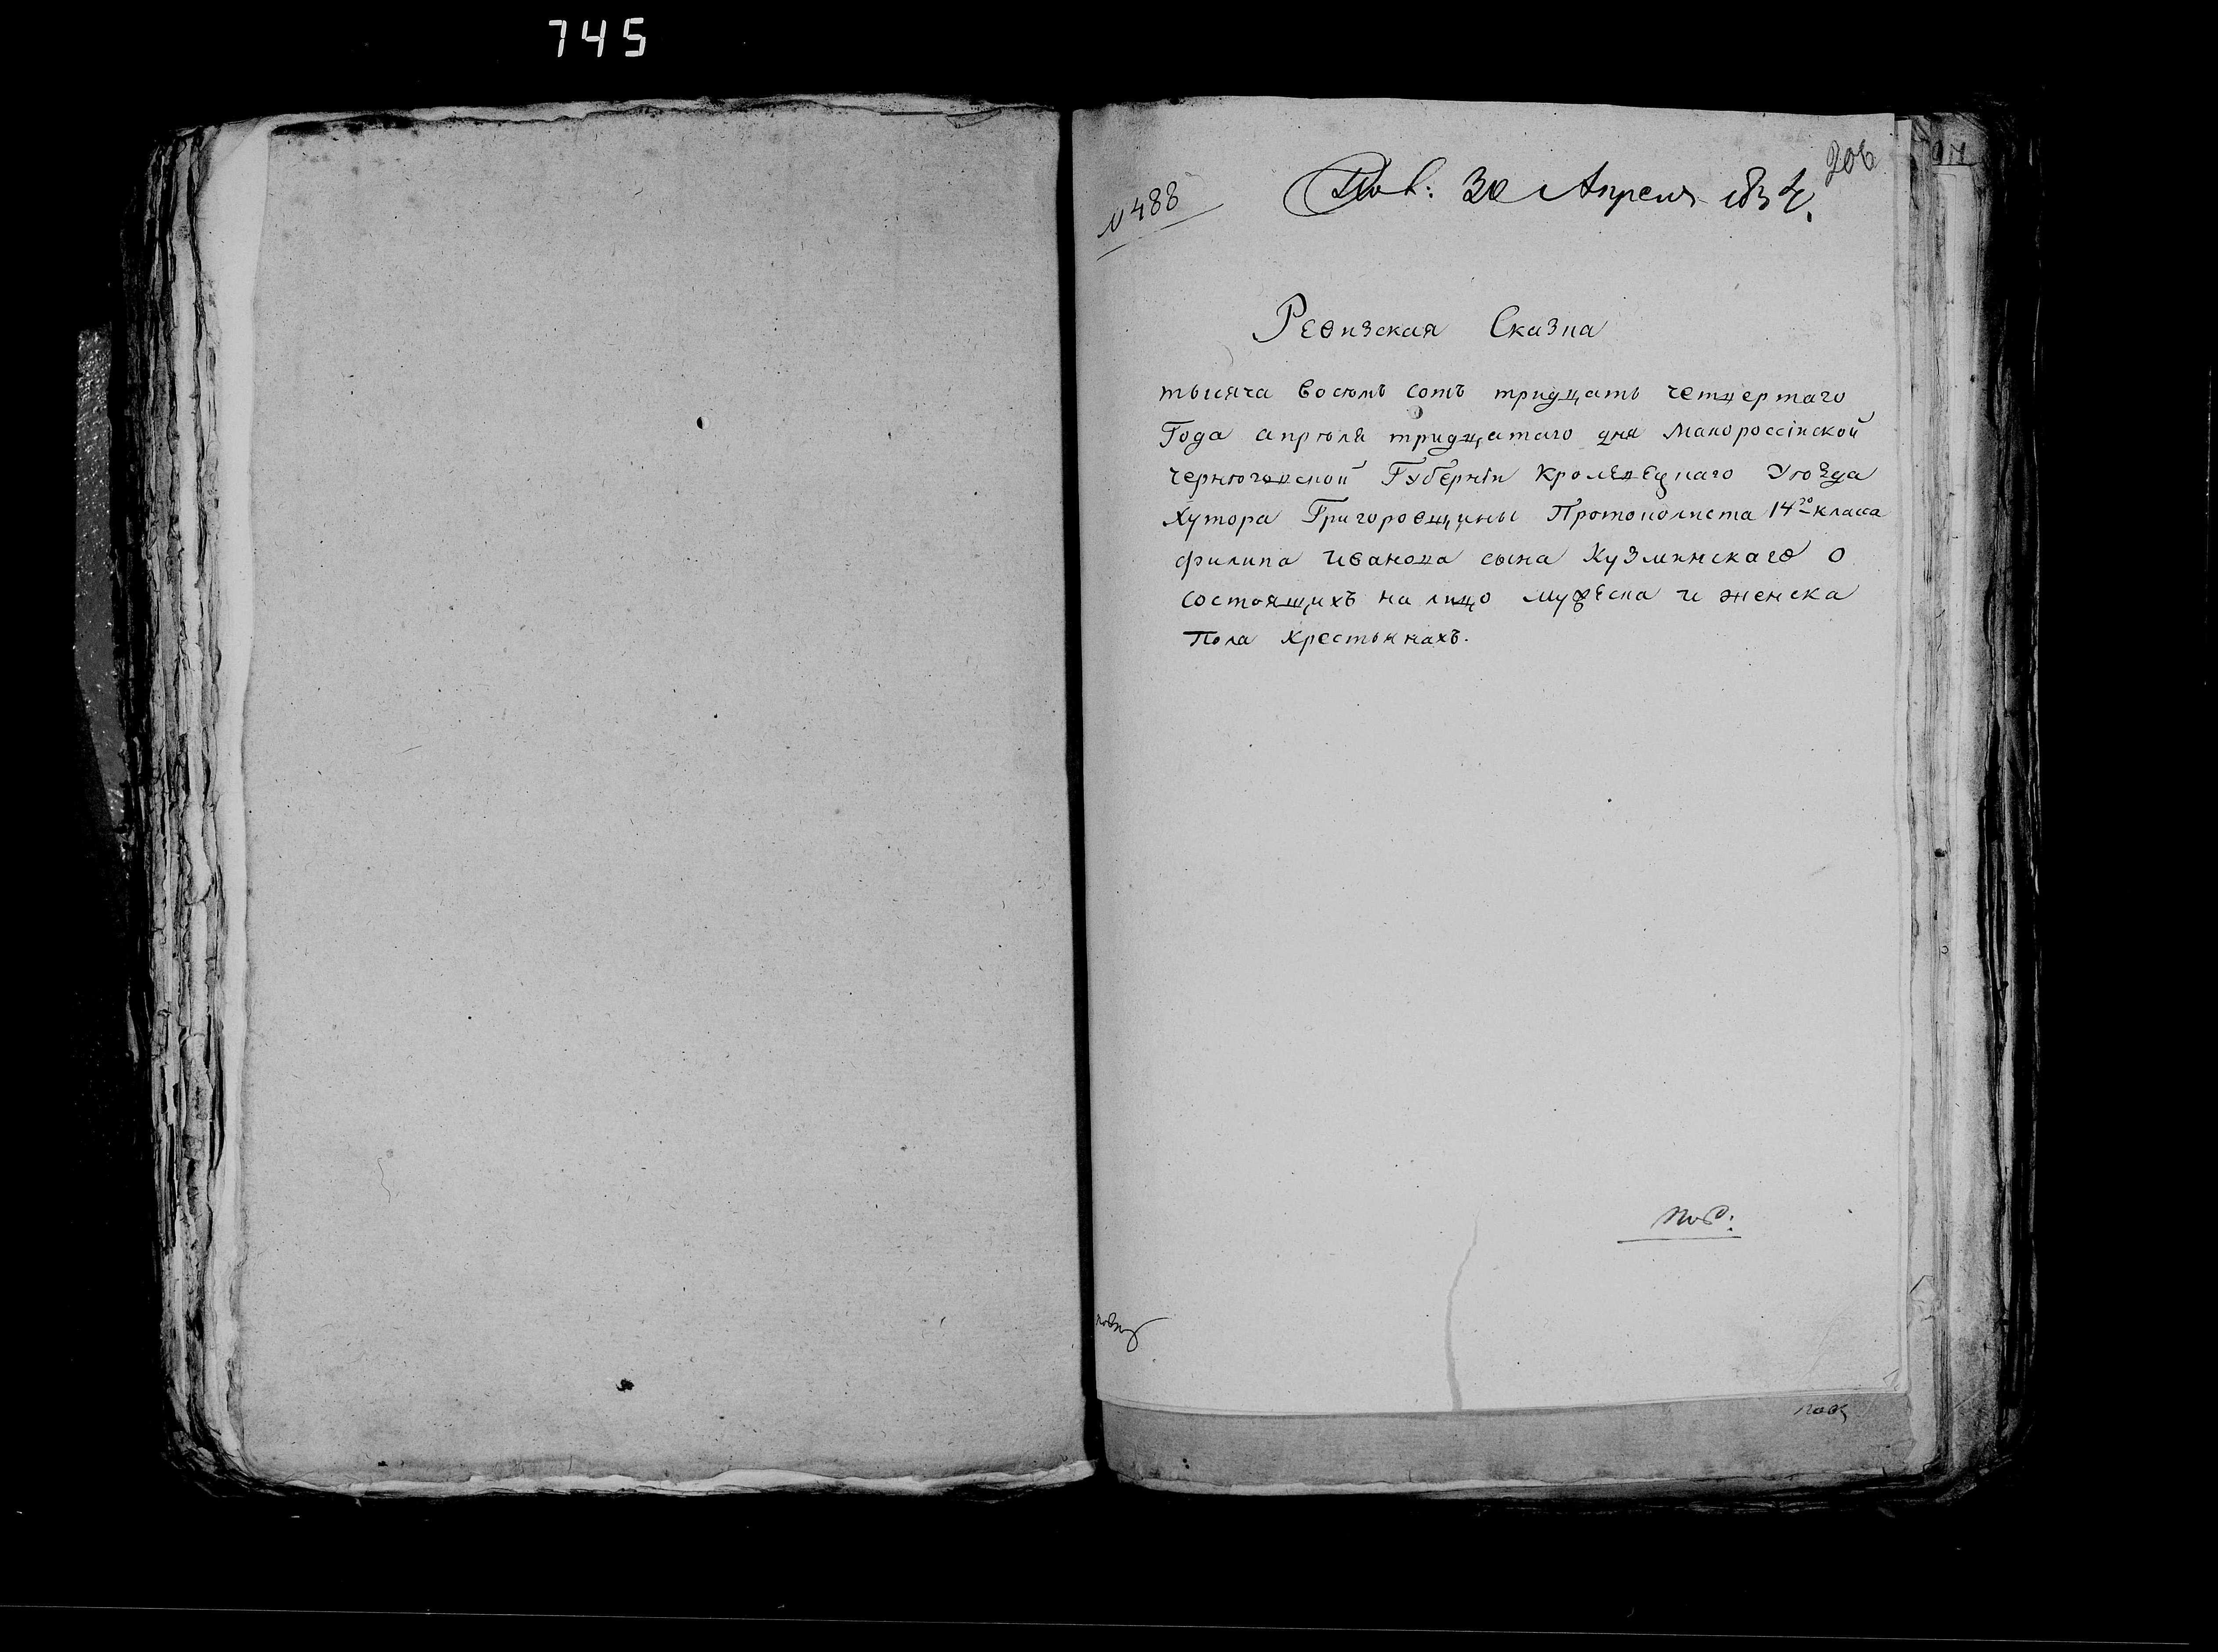 745
206
№ 488
Пов: 30 Апреля 1834.
Ревизская Сказка
тысяча восѣмъ сотъ тридцать четвертаго
Года апрѣля тридцатаго дня Малороссійской
чернѣговской Губерніи Кролевецкаго Уѣзда
Хутора Григоровщины Протоколиста 14го класа
филипа Иванова сына Кузминскаго о
состоящихъ на лицо мужеска и женска
Пола крестьянахъ.